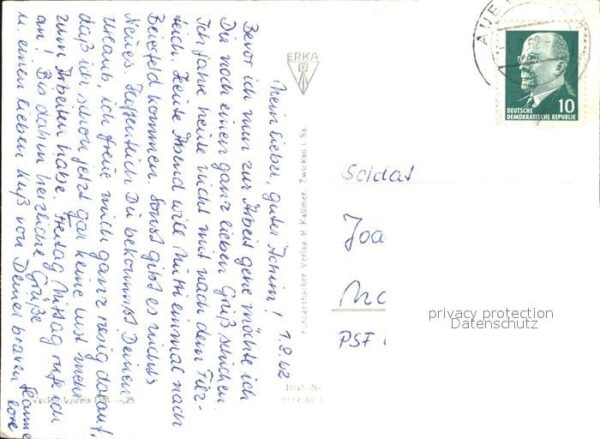 Mein lieber, guter Achim! 1.8.68
Bevor ich nun zur Arbeit gehe möchte ich
Dir noch einen ganz lieben Gruß schicken.
Ich fahre heute nicht mit nach dem
teich. Heute Abend will Mutti einmal nach
kommen. Sonst gibt es nichts
Neues. Hoffentlich Du bekommst Deinen
Urlaub, ich freue mich ganz riesig darauf,
daß ich schon jetzt gar keine Lust mehr
zum Arbeiten habe. Freitag Mittag rufe ich
an! Bis dahin herzliche Grüße
u. einen lieben Kuß von Deiner braven
Hanne
lore
ERKA
H Kallmer, Zwickau i Sa
AUE
DEUTSCHE
DEMOKRATISCHE REPUBLIK
10
Soldat
Joa
PSF
privacy protection
Datenschutz